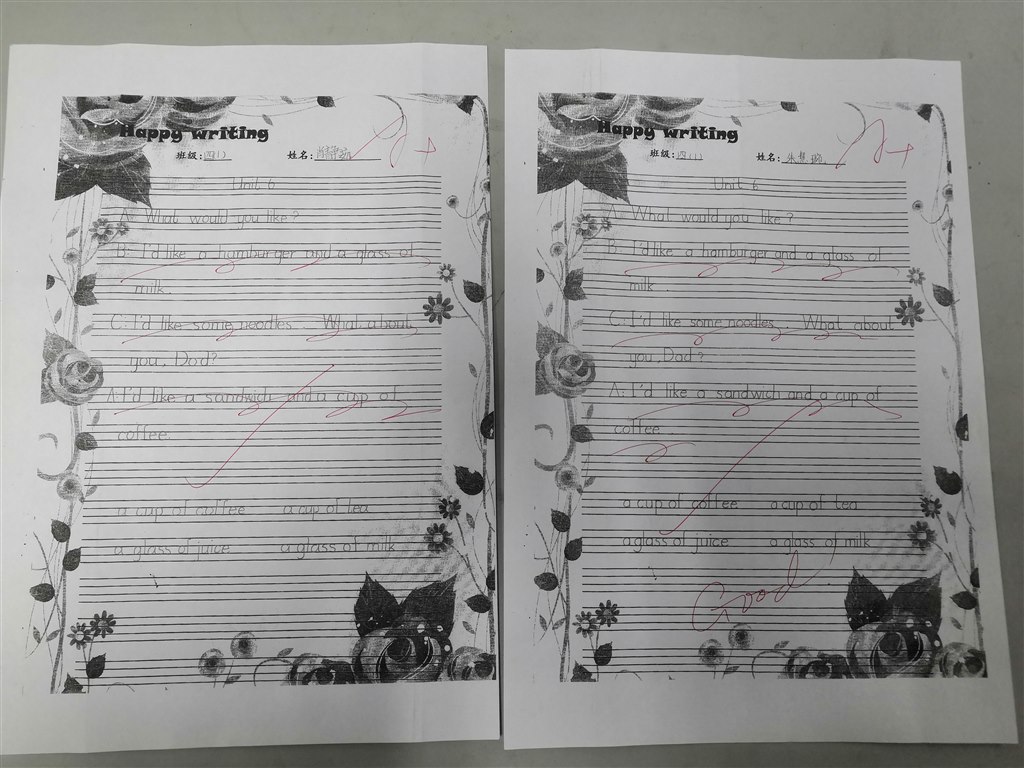 Happy writing
班级: 四(1) 姓名:
A+
Unit 6
A: What would you like?
B: I'd like a hamburger and a glass of
milk.
C: I'd like some noodles. What about
you, Dad?
A: I'd like a sandwich and a cup of
coffee.
a cup of coffee a cup of tea
a glass of juice a glass of milk
Happy writing
班级: 四(1) 姓名: 朱慧
A+
Unit 6
A: What would you like?
B: I'd like a hamburger and a glass of
milk.
C: I'd like some noodles. What about
you, Dad?
A: I'd like a sandwich and a cup of
coffee.
a cup of coffee a cup of tea
a glass of juice a glass of milk
Good!